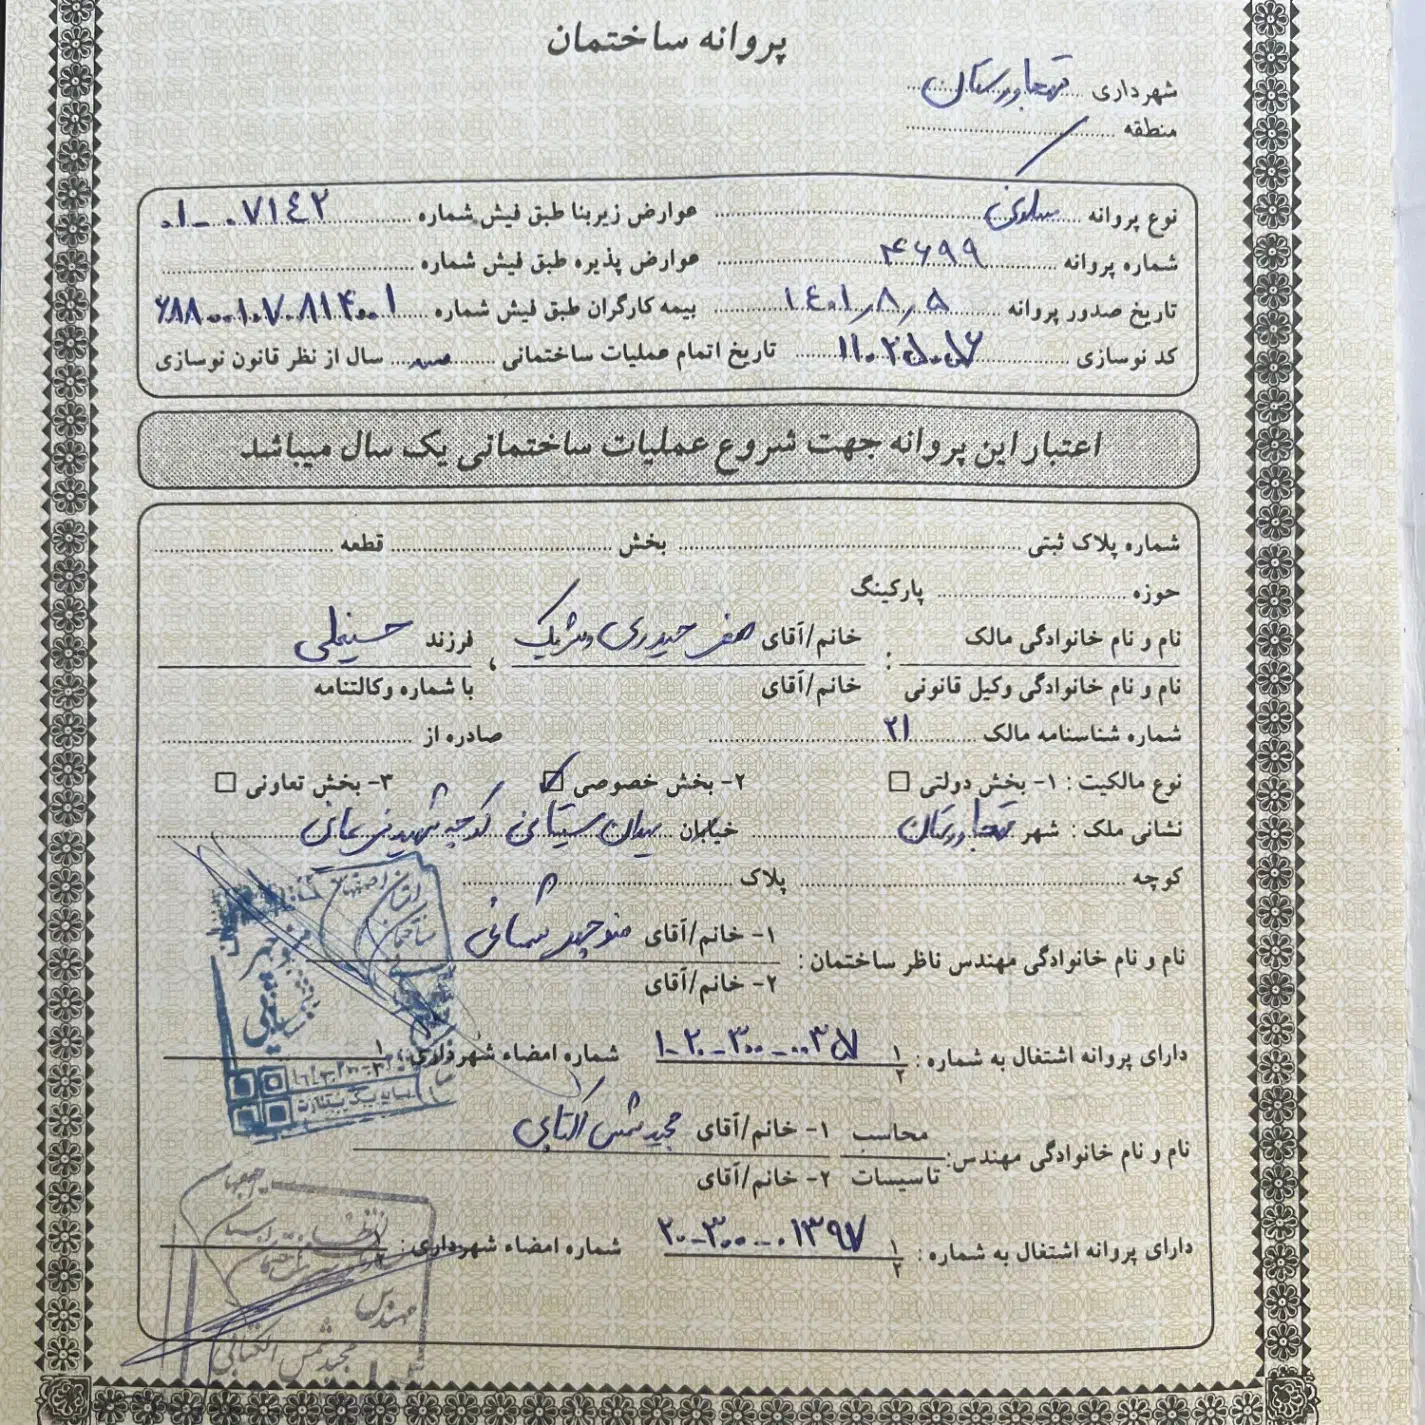 پروانه ساختمان
شهرداری قهجاورستان
منطقه
نوع پروانه مسکونی عوارض زیربنا طبق فیش شماره ۰۷۱۴۲-۰۱
شماره پروانه ۴۶۹۹ عوارض پذیره طبق فیش شماره
تاریخ صدور پروانه ۱۴۰۱/۸/۵ بیمه کارگران طبق فیش شماره
کد نوسازی تاریخ اتمام عملیات ساختمانی سه سال از نظر قانون نوسازی
اعتبار این پروانه جهت شروع عملیات ساختمانی یک سال میباشد
شماره پلاک ثبتی بخش قطعه
حوزه پارکینگ
نام و نام خانوادگی مالک : خانم/آقای صفر حیدری و شریک ، فرزند حسینعلی
نام و نام خانوادگی وکیل قانونی خانم/آقای با شماره وکالتنامه
شماره شناسنامه مالک ۲۱ صادره از
نوع مالکیت : ۱- بخش دولتی ۲- بخش خصوصی ۳- بخش تعاونی
نشانی ملک : شهر قهجاورستان خیابان کوچه شهید
کوچه پلاک
نام و نام خانوادگی مهندس ناظر ساختمان : ۱- خانم/آقای منوچهر
۲- خانم/آقای
دارای پروانه اشتغال به شماره : ۱ ۱۰-۲۰-۳۰۰-۰۰۳۵۷ شماره امضاء شهرداری : ۱
۲
نام و نام خانوادگی مهندس : محاسب ۱- خانم/آقای مجید شمس الکتابی
تاسیسات ۲- خانم/آقای
دارای پروانه اشتغال به شماره : ۱ ۲۰-۳۰۰-۰۱۳۹۷ شماره امضاء شهرداری : ۱
۲
مهندس
مجید شمس الکتابی